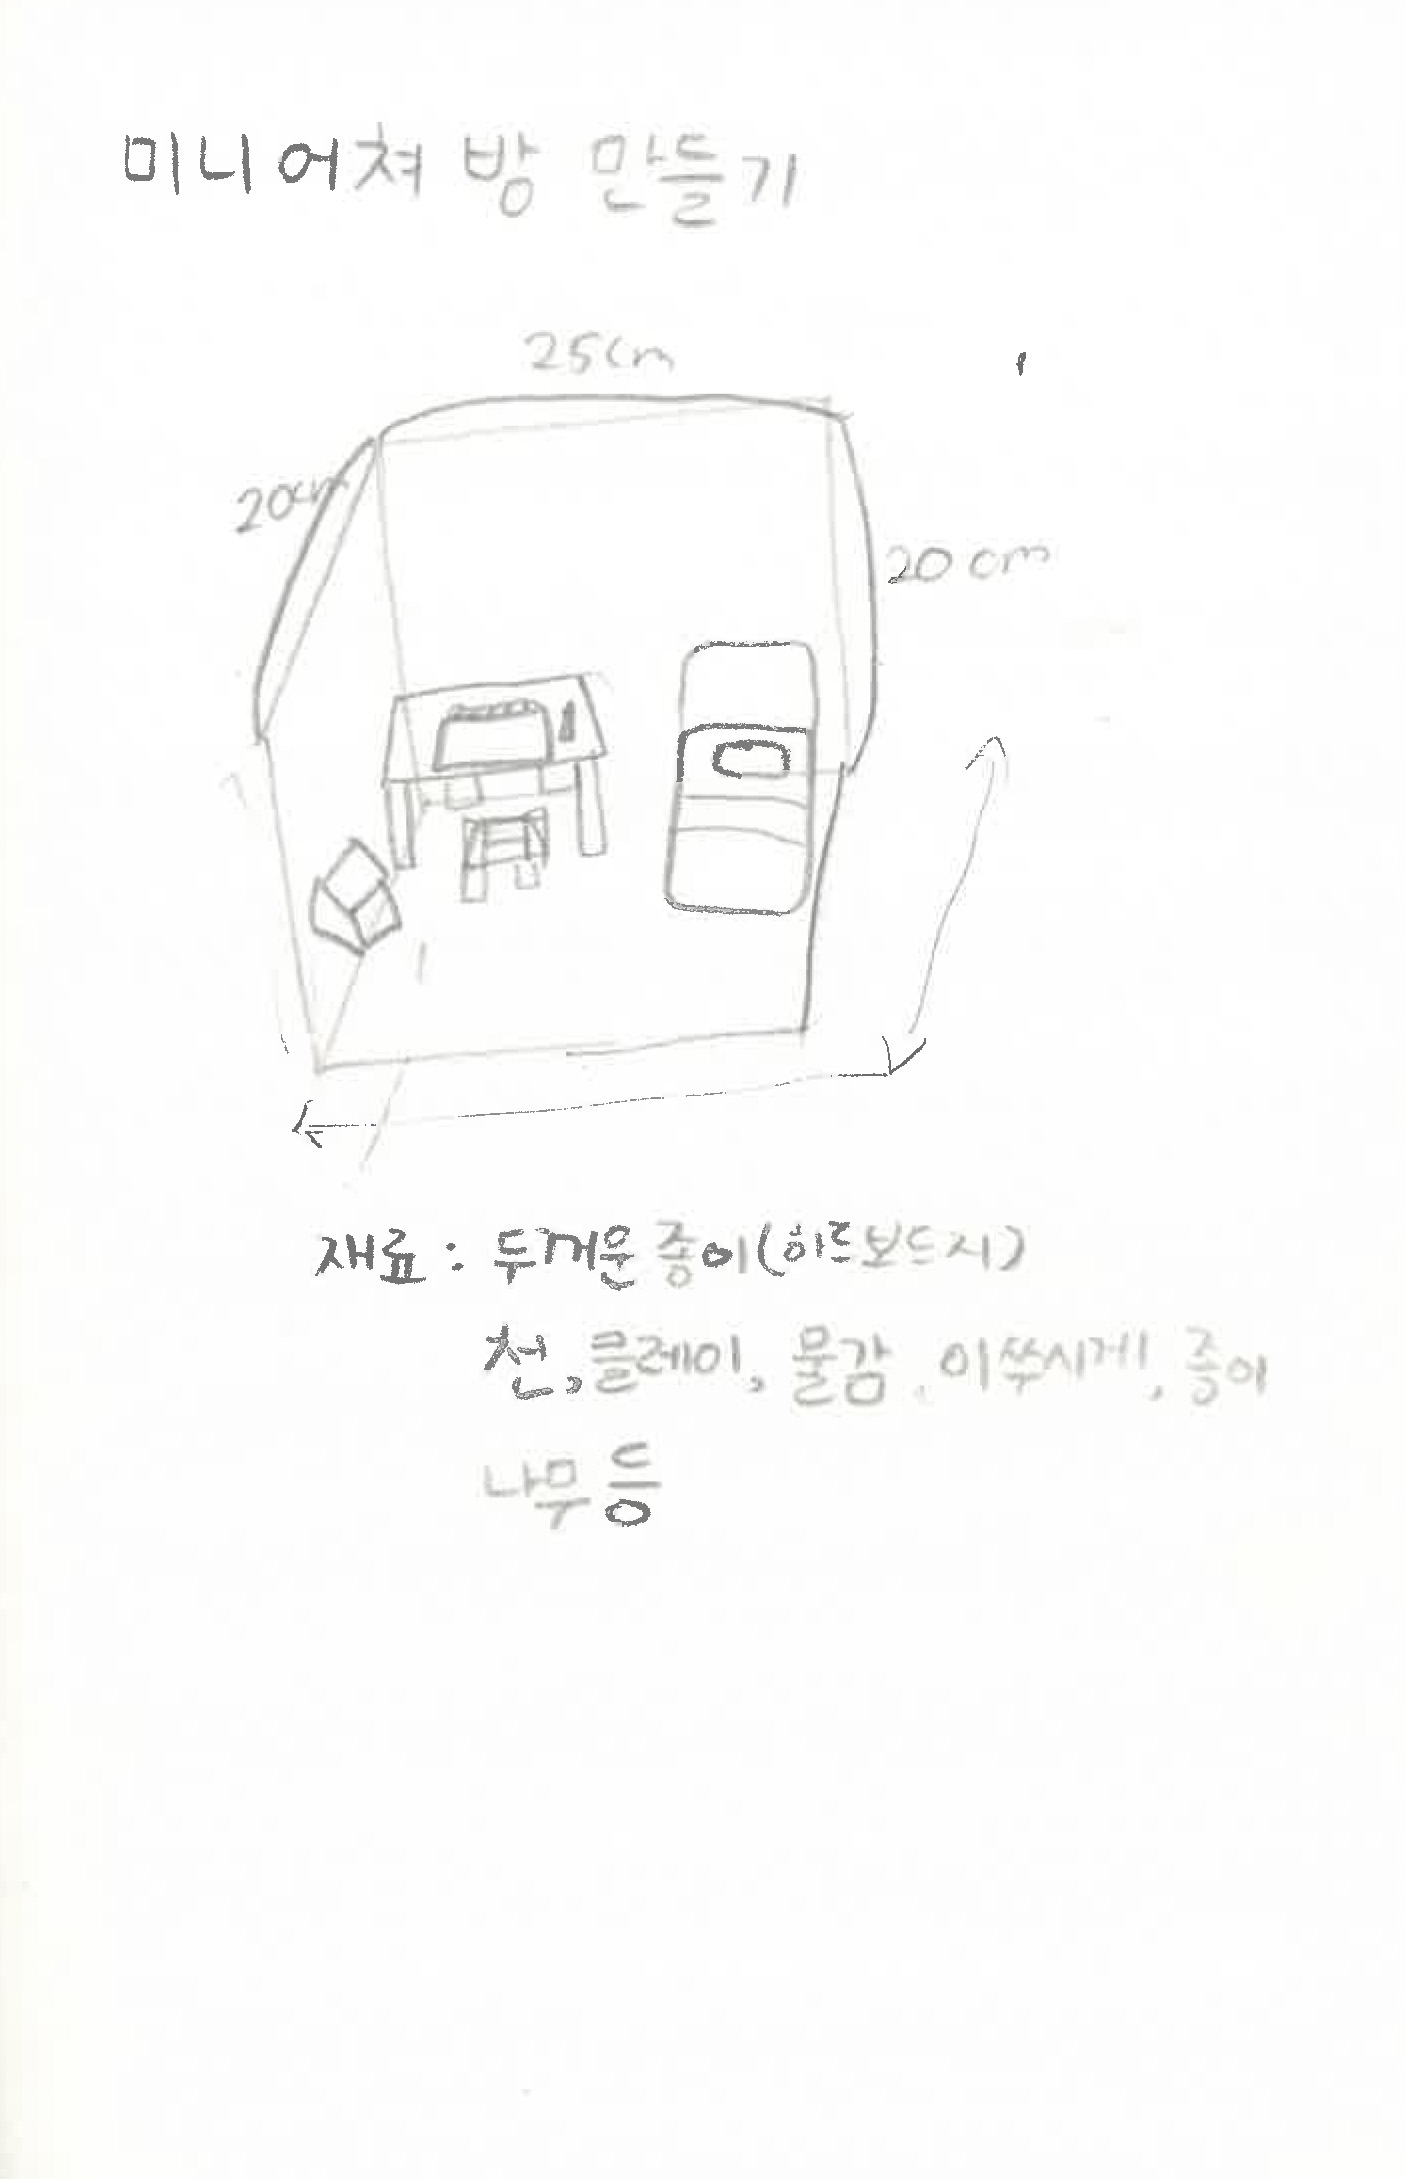 미니어쳐 방 만들기
25cm
20cm
20cm
재료 : 두꺼운 종이(하드보드지)
천, 클레이, 물감, 이쑤시게, 종이
나무 등